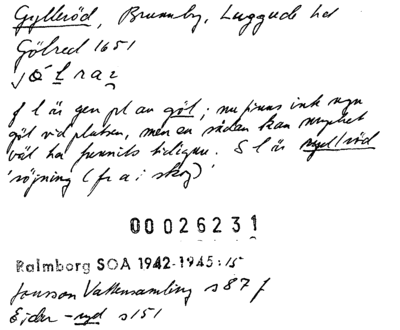 Gylleröd, Brunnby, Luggude hd
Gölred 1651
f l är gen pl av göl; nu finns ink ngn
göl vid platsen, men en sådan kan mycket
väl ha funnits tidigare. S l är ryd/röd
'röjning (fr a i skog)'
00026231
Ralmborg SOA 1942-1945:15
Jonsson Vattensamling s 87 f
Ejder -ryd s 151